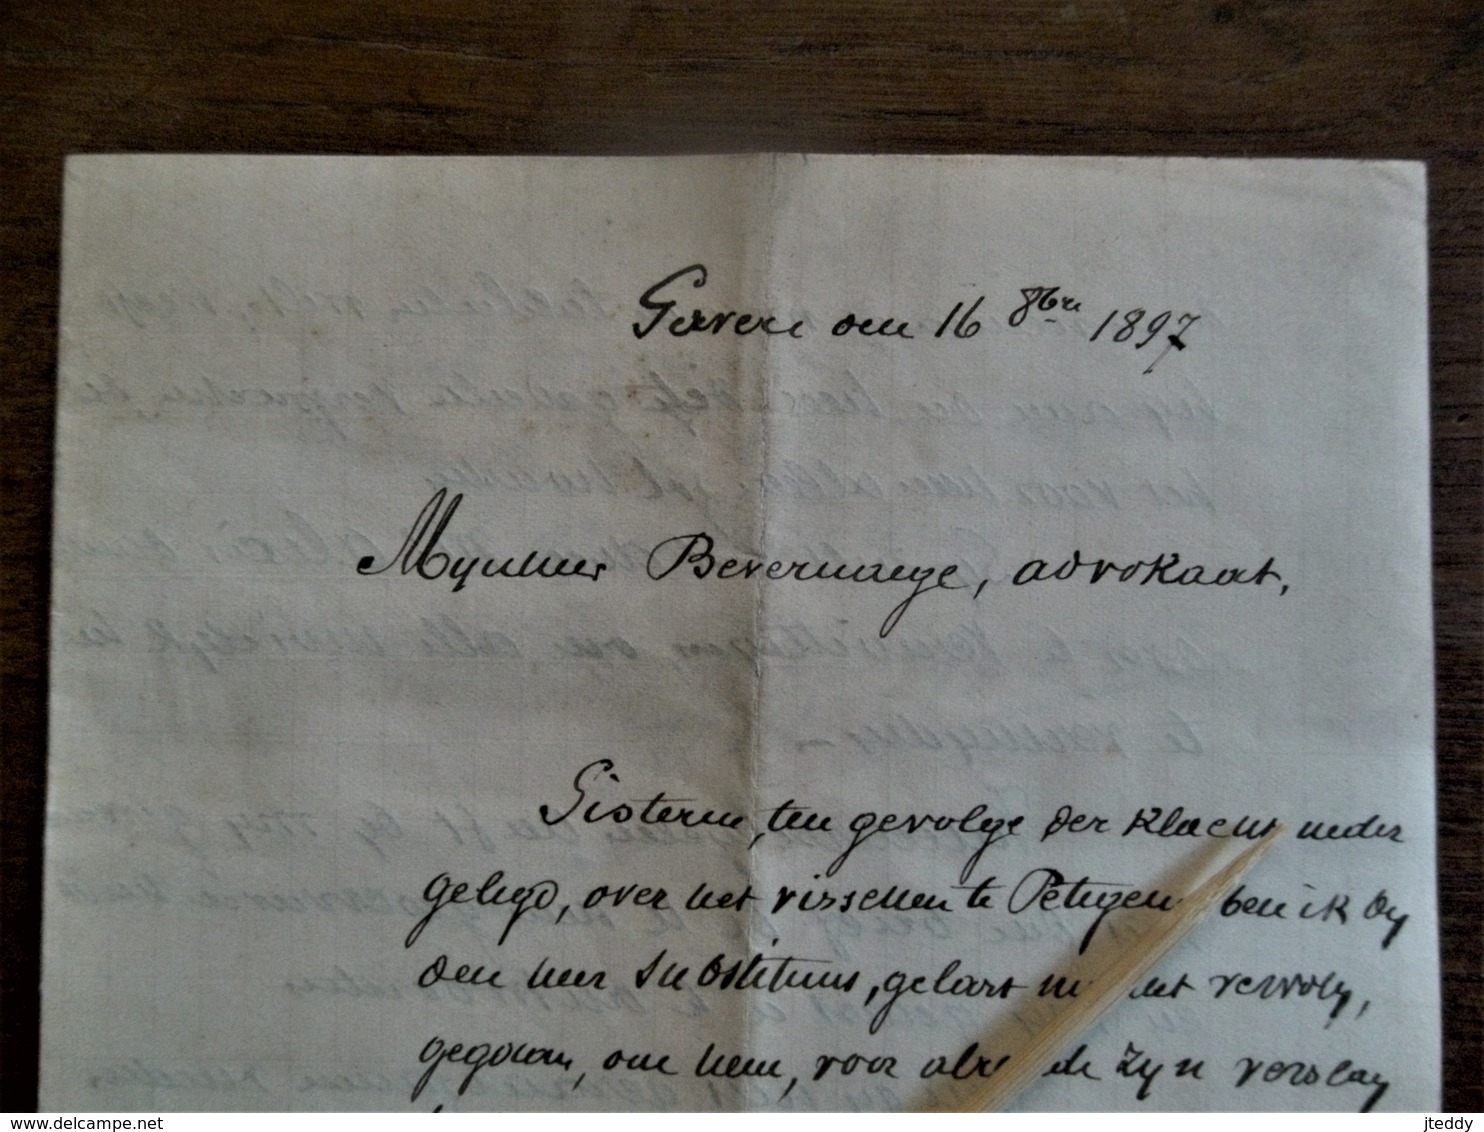 Gavere den 16 8bre 1897
Mynheer Bevernaege, advokaat,
Gisteren, ten gevolge der klacht neder
gelegd, over het visschen te Petegem ben ik by
den heer substituut, gelast met het vervolg,
gegaan, om hem, voor zyn verslag
www.delcampe.net
jteddy